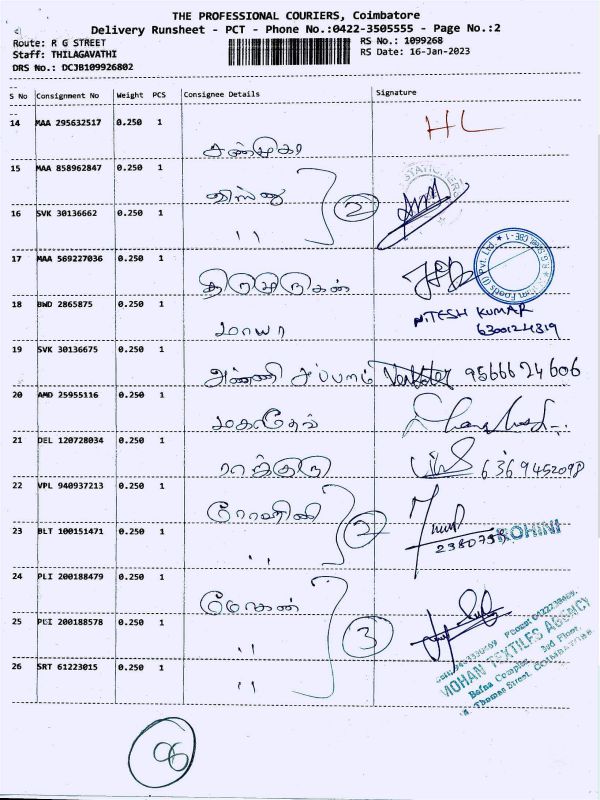 THE PROFESSIONAL COURIERS, Coimbatore
Delivery Runsheet - PCT - Phone No.:0422-3505555 - Page No.:2
Route: R G STREET
Staff: THILAGAVATHI
DRS No.: DCJB109926802
RS No.: 1099268
RS Date: 16-Jan-2023
S No Consignment No Weight PCS Consignee Details Signature
14 MAA 295632517 0.250 1
HL
15 MAA 858962847 0.250 1
2
16 SVK 30136662 0.250 1
"
17 MAA 569227036 0.250 1
திருமுருகன்
18 BWD 2865875 0.250 1
மாயா
NITESH KUMAR
6300124319
19 SVK 30136675 0.250 1
அண்ணி சப்பரம் 9566624606
20 AMD 25955116 0.250 1
மகாதேவ்
21 DEL 120728034 0.250 1
ராஜகுரு 6369452098
22 VPL 940937213 0.250 1
ரோஹினி
2
23 BLT 100151471 0.250 1
"
ROHINI
24 PLI 200188479 0.250 1
மோகன்
25 PLI 200188578 0.250 1
"
3
26 SRT 61223015 0.250 1
"
MOHAN TEXTILES AGENCY
Bafna Complex 3rd Floor,
Thomas Street, COIMBATORE